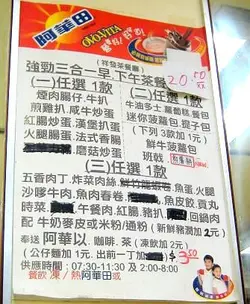 阿華田
OVOMALTINE
(祥發茶餐廳)
強勁三合一早.下午茶餐 20.50
(一)任選1款 (二)任選1款
煙肉腸仔.牛扒 牛油多士.蘿蔔糕.餐包
煎雞扒.咸牛炒蛋 迷你菠蘿包.栗子包
紅腸炒蛋.漢堡扒蛋 (下列3款加1元)
火腿腸蛋.法式香腸 鮮牛菠蘿包
蘑菇炒蛋 班戟
(三)任選1款
五香肉丁.炸菜肉絲.魚蛋.火腿
沙嗲牛肉.魚肉春卷 魚皮餃.貢丸
時菜 午餐肉.紅腸.豬扒 回鍋肉
配 牛奶麥皮或米粉/通粉(新鮮豬潤加2元)
奉送 阿華以 咖啡.茶(凍飲加2元)
(公仔麵加1元.出前一丁加 $3.50
供應時間:07:30-11:30 及 2:00-8:00
餐飲 凍/熱阿華田或